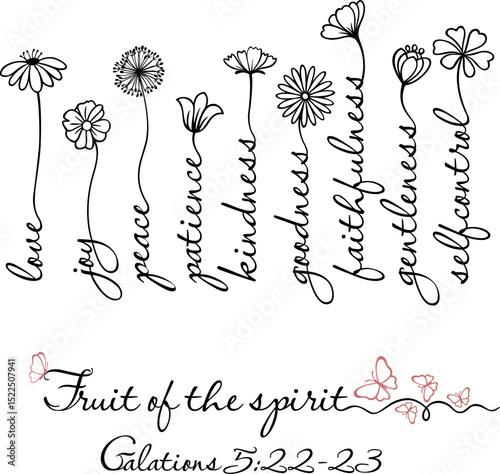 love
joy
peace
patience
kindness
goodness
faithfulness
gentleness
selfcontrol
Fruit of the spirit
Galations 5:22-23
Adobe Stock | #1522507941